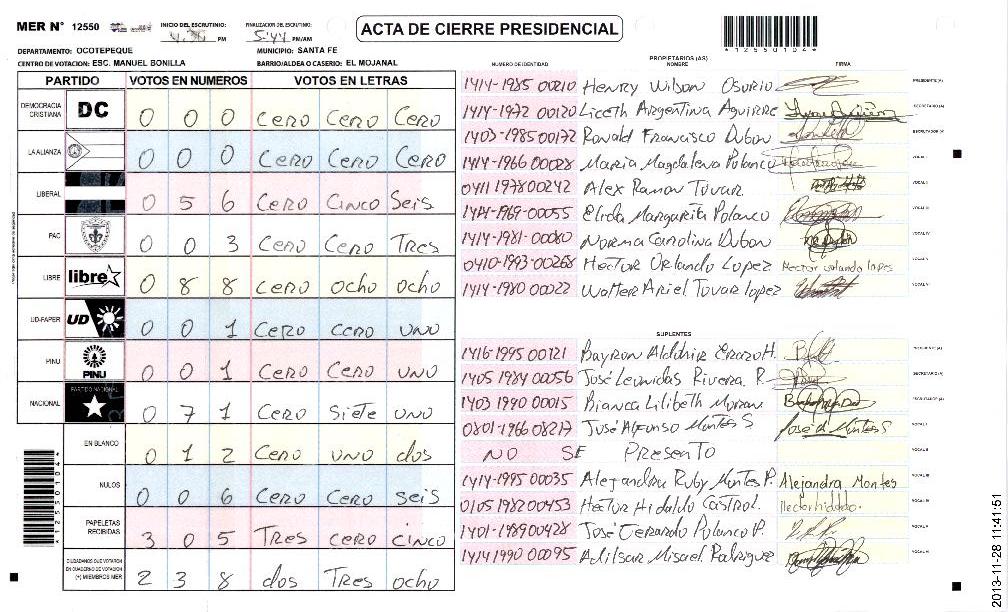 MER N° 12550
INICIO DEL ESCRUTINIO: PM
FINALIZACION DEL ESCRUTINIO: 5:44 PM/AM
ACTA DE CIERRE PRESIDENCIAL
*12550104*
DEPARTAMENTO: OCOTEPEQUE MUNICIPIO: SANTA FE
CENTRO DE VOTACION: ESC. MANUEL BONILLA BARRIO/ALDEA O CASERIO: EL MOJANAL
PARTIDO VOTOS EN NUMEROS VOTOS EN LETRAS
DEMOCRACIA CRISTIANA DC 0 0 0 CERO CERO CERO
LA ALIANZA 0 0 0 CERO CERO CERO
LIBERAL 0 5 6 CERO CINCO SEIS
PAC 0 0 3 CERO CERO TRES
LIBRE libre 0 8 8 CERO OCHO OCHO
UD-FAPER UD 0 0 1 CERO CERO UNO
PINU PINU 0 0 1 CERO CERO UNO
NACIONAL PARTIDO NACIONAL 0 7 1 CERO SIETE UNO
EN BLANCO 0 1 2 CERO UNO dos
NULOS 0 0 6 CERO CERO SEIS
PAPELETAS RECIBIDAS 3 0 5 TRES CERO CINCO
CIUDADANOS QUE VOTARON EN CUADERNO DE VOTACION (+) MIEMBROS MER 2 3 8 dos TRES ocho
*12550104*
PROPIETARIOS (AS)
NUMERO DE IDENTIDAD NOMBRE FIRMA
1414-1985 00210 Henry Wilson Osorio PRESIDENTE(A)
1414-1972 00120 Liceth Argentina Aguirre SECRETARIO(A)
1403-1985 00172 Ronald Francisco Dubon ESCRUTADOR(A)
1414-1966 00028 Maria Magdalena Polanco VOCAL I
0411 1978 00242 Alex Ramon Tovar VOCAL II
1414-1969-00055 Elida Margarita Polanco VOCAL III
1414-1981-00080 Norma Carolina Dubon VOCAL IV
0410-1993-00268 Hector Orlando Lopez Hector orlando lopes VOCAL V
1414-1980 00022 Walter Ariel Tovar lopez VOCAL VI
SUPLENTES
1416-1995 00121 Bayron Aldahir Erazo H. PRESIDENTE(A)
1405 1984 00056 José Leonidas Rivera R. SECRETARIO(A)
1403 1990 00015 Bianca Lilibeth Moran ESCRUTADOR(A)
0801-1966 08217 José Alfonso Montes S José A Montes S VOCAL I
NO SE PRESENTO VOCAL II
1414-1995 00035 Alejandra Ruby Montes P. Alejandra Montes VOCAL III
0105 1982 00453 Hector Hidaldo Castro l. Hector hidaldo. VOCAL IV
1401-1989 00428 José Gerardo Polanco P. VOCAL V
1414 1990 00095 Adilsar Misael Rodriguez VOCAL VI
2013-11-28 11:41:51